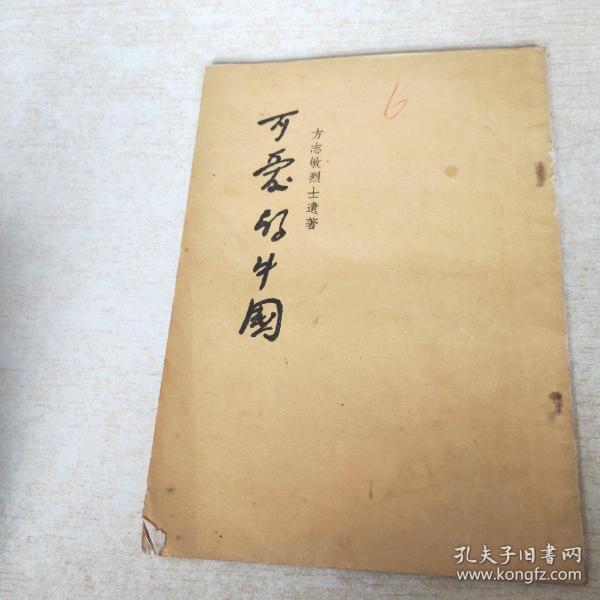 6
方志敏烈士遺著
可愛的中國
孔夫子旧书网
www.kongfz.com